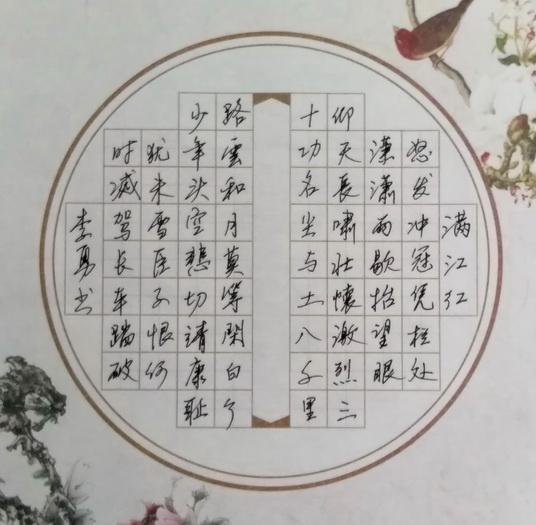 满江红
怒发冲冠凭栏处
潇潇雨歇抬望眼
仰天長嘯壮懷激烈三
十功名尘与土八千里
路雲和月莫等閑白了
少年头空悲切靖康耻
犹未雪臣子恨何
时滅駕长车踏破
李勇书